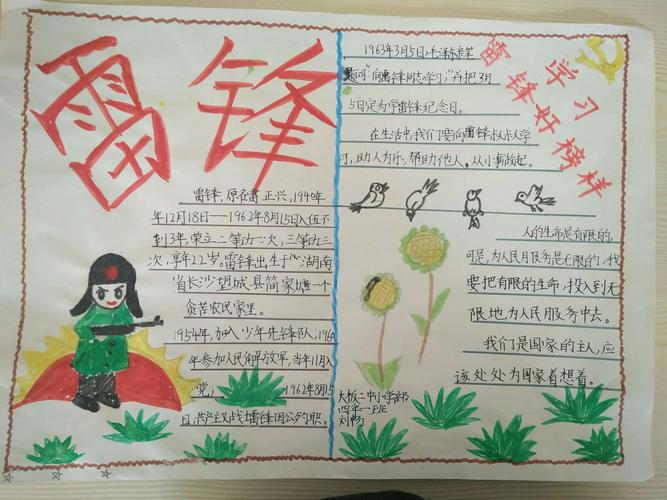 雷锋
雷锋,原名雷正兴,1940年
年12月18日——1962年8月15日入伍不
到3年,荣立二等功一次,三等功三
次,享年22岁,雷锋出生于湖南
省长沙望城县简家塘一个
贫苦农民家里。
1954年,加入少年先锋队,196
年参加人民解放军,当年11月入
党, 1962年8月15
日,共产主义战士雷锋因公殉职。
学习
雷锋好榜样
1963年3月5日,毛泽东亲笔
题词"向雷锋同志学习,"并把3月
5日定为学雷锋纪念日。
在生活中,我们要向雷锋叔叔学
习,助人为乐,帮助他人,从小事做起。
人的生命是有限的,
可是,为人民服务是无限的,我
要把有限的生命,投入到无
限地为人民服务中去。
我们是国家的主人,应
该处处为国家着想着。
大板二中小学部
四年一班
刘畅